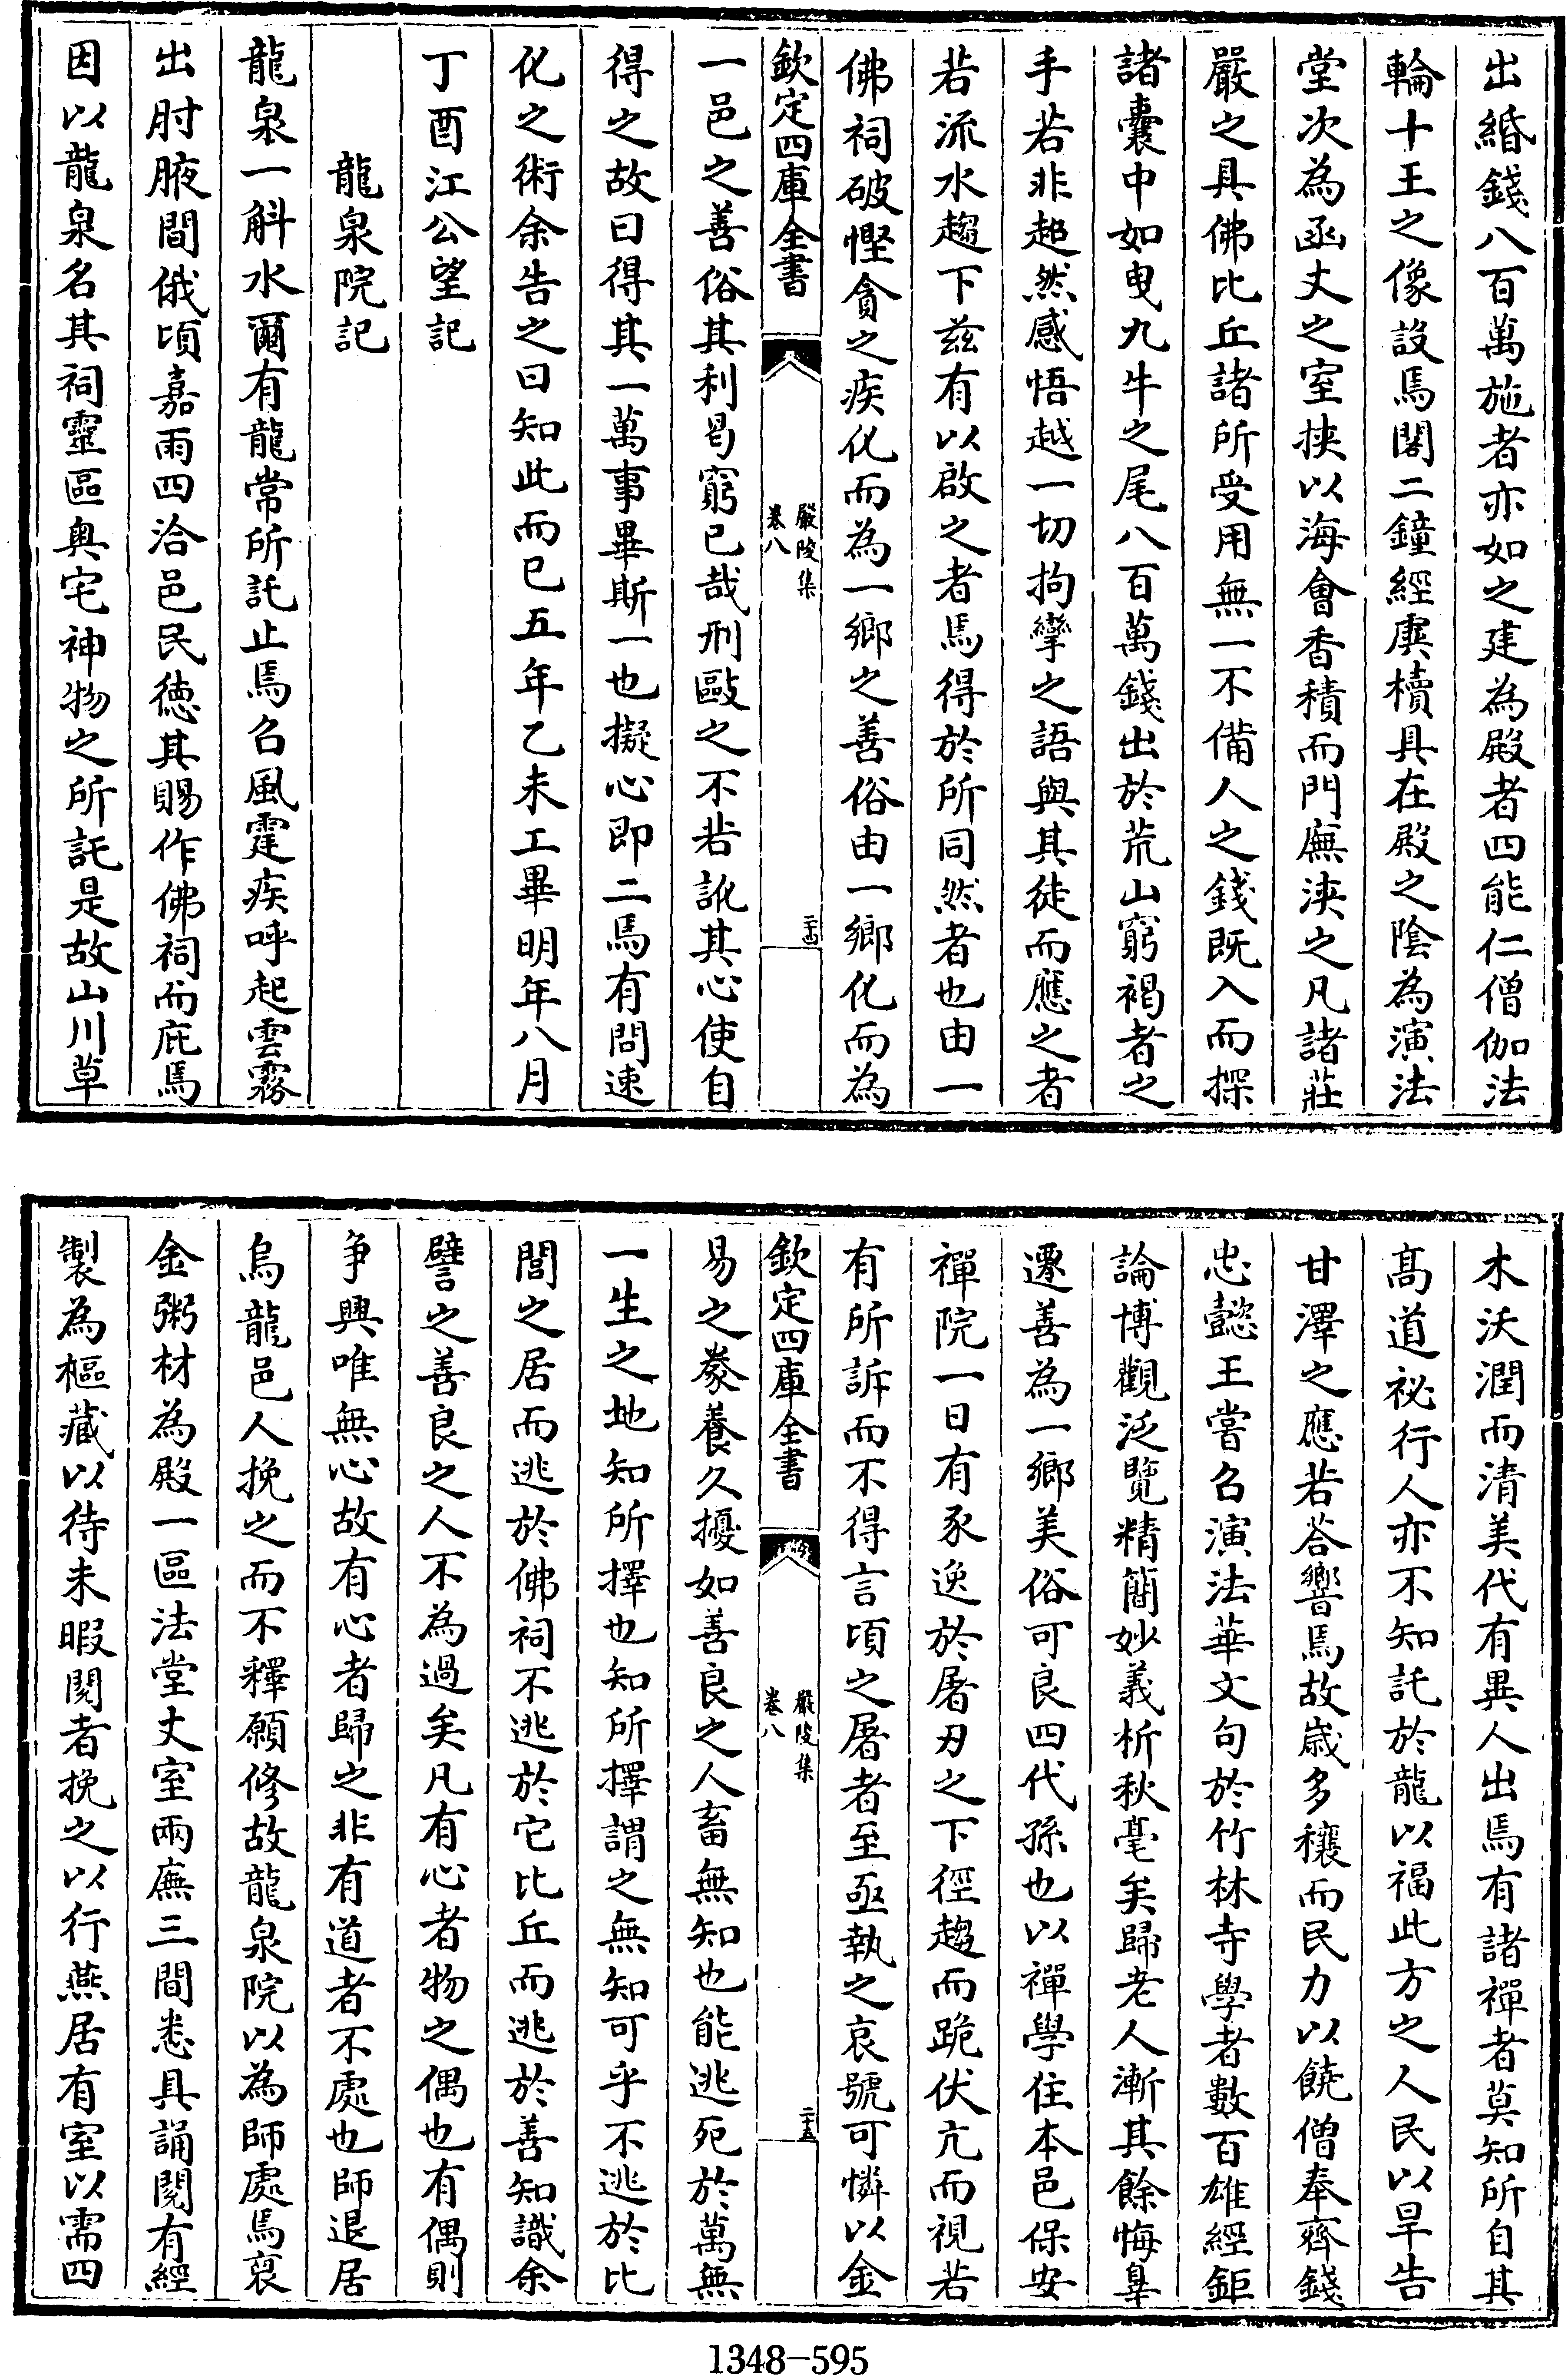 出緡錢八百萬施者亦如之建為殿者四能仁僧伽法
輪十王之像設焉閣二鐘經虡櫝具在殿之陰為演法
堂次為函丈之室挾以海會香積而門廡浹之凡諸莊
嚴之具佛比丘諸所受用無一不備人之錢既入而探
諸囊中如曳九牛之尾八百萬錢出於荒山窮褐者之
手若非超然感悟越一切拘攣之語與其徒而應之者
若流水趨下茲有以啟之者焉得於所同然者也由一
佛祠破慳貪之疾化而為一鄉之善俗由一鄉化而為
欽定四庫全書
嚴陵集
卷八
二十四
一邑之善俗其利曷窮已哉刑毆之不若訛其心使自
得之故曰得其一萬事畢斯一也擬心即二焉有問速
化之術余告之曰知此而已五年乙未工畢明年八月
丁酉江公望記
龍泉院記
龍泉一斛水爾有龍常所託止焉召風霆疾呼起雲霧
出肘腋間俄頃嘉雨四洽邑民德其賜作佛祠而庇焉
因以龍泉名其祠靈區奥宅神物之所託是故山川草
木沃潤而清美代有異人出焉有諸禪者莫知所自其
髙道祕行人亦不知託於龍以福此方之人民以旱告
甘澤之應若荅響焉故歲多穰而民力以饒僧奉齊錢
忠懿王嘗召演法華文句於竹林寺學者數百雄經鉅
論博觀泛覽精簡妙義析秋毫矣歸老人漸其餘悔辠
遷善為一鄉美俗可良四代孫也以禪學住本邑保安
禪院一日有豕逸於屠刃之下徑趨而跪伏亢而視若
有所訴而不得言頃之屠者至亟執之哀號可憐以金
欽定四庫全書
嚴陵集
卷八
二十五
易之豢養久擾如善良之人畜無知也能逃死於萬無
一生之地知所擇也知所擇謂之無知可乎不逃於比
閭之居而逃於佛祠不逃於它比丘而逃於善知識余
譬之善良之人不為過矣凡有心者物之偶也有偶則
争興唯無心故有心者歸之非有道者不處也師退居
烏龍邑人挽之而不釋願修故龍泉院以為師處焉裒
金粥材為殿一區法堂丈室兩廡三間悉具誦閱有經
製為樞藏以待未暇閱者挽之以行燕居有室以需四
1348-595